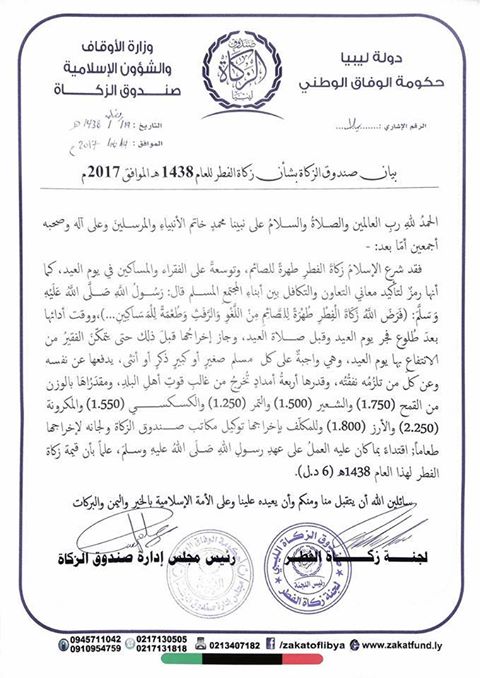 دولة ليبيا
حكومة الوفاق الوطني
صندوق
الزكاة
ليبيا
وزارة الأوقاف
والشؤون الإسلامية
صندوق الزكاة
الرقم الإشاري :
التاريخ : / / 1438 هـ
الموافق : / / 2017 م
بيان صندوق الزكاة بشأن زكاة الفطر للعام 1438 هـ الموافق 2017 م
الحمدُ للهِ ربِ العالمين والصلاةُ والسلامُ على نبينا محمدٍ خاتم الأنبياءِ والمرسلينَ وعلى آله وصحبه
أجمعين أمّا بعد: -
فقد شرع الإسلامُ زكاةَ الفطرِ طهرةً للصائم، وتوسعةً على الفقراء والمساكين في يوم العيد، كما
أنها رمزٌ لتأكيد معاني التعاون والتكافل بين أبناء المجتمع المسلم قال: رَسُولُ اللَّهِ صَلَّى اللَّهُ عَلَيْهِ
وَسَلَّمَ: (فَرَضَ اللَّهُ زَكَاةَ الْفِطْرِ طُهْرَةً لِلصَّائِمِ مِنَ اللَّغْوِ وَالرَّفَثِ وَطُعْمَةً لِلْمَسَاكِينِ...)، ووقت أدائها
بعدَ طُلوع فجر يوم العيد وقبل صلاة العيد، وجاز إخراجُها قبلَ ذلك حتى يتمكّنَ الفقيرُ من
الانتفاع بها يوم العيد، وهي واجبةٌ على كل مسلم صغيرٍ أو كبيرٍ ذكرٍ أو أنثى، يدفعها عن نفسه
وعن كل من تلزمُه نفقتُه، وقدرها أربعةُ أمدادٍ تُخرجُ من غالبِ قوتِ أهلِ البلدِ، ومقدَرُاها بالوزن
من القمح (1.750) والشعير (1.500) والتمر (1.250) والكسكسي (1.550) والمكرونة
(2.250) والأرز (1.800) وللمكلّف بإخراجها توكيل مكاتب صندوق الزكاة ولجانه لإخراجها
طعاماً؛ اقتداءً بماكان عليه العملُ على عهدِ رسولِ اللهِ صلَّى الله عليه وسلم، علماً بأن قيمة زكاة
الفطر لهذا العام 1438هـ (6 د.ل).
سائلين الله أن يتقبل منا ومنكم وأن يعيده علينا وعلى الأمة الإسلامية بالخير واليمن والبركات
لجنة زكاة الفطر
رئيس مجلس إدارة صندوق الزكاة
صندوق الزكاة الليبي
رئيس اللجنة
لجنة زكاة الفطر
0945711042
0910954759
0217130505
0217131818
0213407182
/zakatoflibya
www.zakatfund.ly